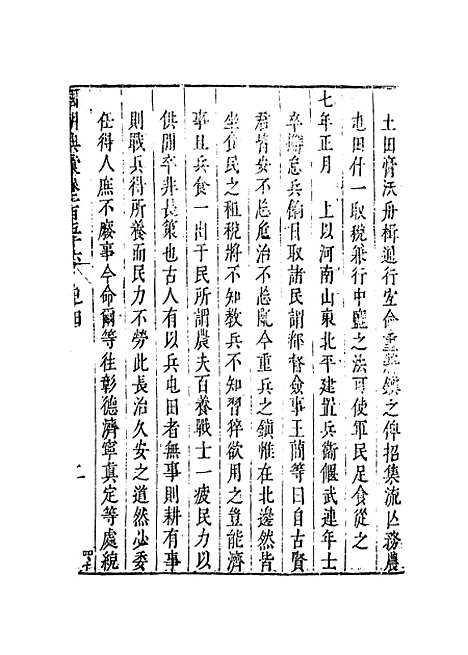 土田膏沃舟楫通行宜命重將鎮之俾招集流亾務農
屯田什一取稅兼行中鹽之法可使軍民足食從之
七年正月　上以河南山東北平建置兵衞偃武連年士
卒擁怠兵餉日取諸民謂都督僉事王簡等曰自古賢
君皆安不忘危治不忘亂今重兵之鎮惟在北邊然皆
坐食民之租稅將不知教兵不知習猝欲用之豈能濟
事且兵食一出于民所謂農夫百養戰士一疲民力以
供閒卒非長策也古人有以兵屯田者無事則耕有事
則戰兵得所養而民力不勞此長治久安之道然必委
任得人庶不廢事今命爾等往彰德濟寧真定等處統
國朝典彙卷之一百五十六　屯田　二